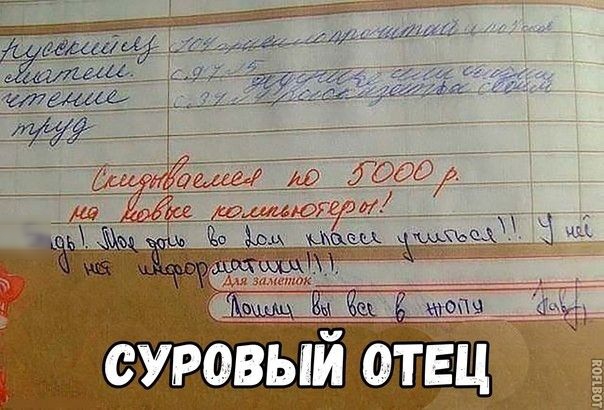 русский яз
матем. с.97 №5
чтение с.39
труд
Скидываемся по 5000 р.
на новые компьютеры!
ядь! Моя дочь во 2ом классе учиться!! У неё
нет информатики!!!
Для заметок
Пошли вы все в жопу
СУРОВЫЙ ОТЕЦ
ROFLBOT